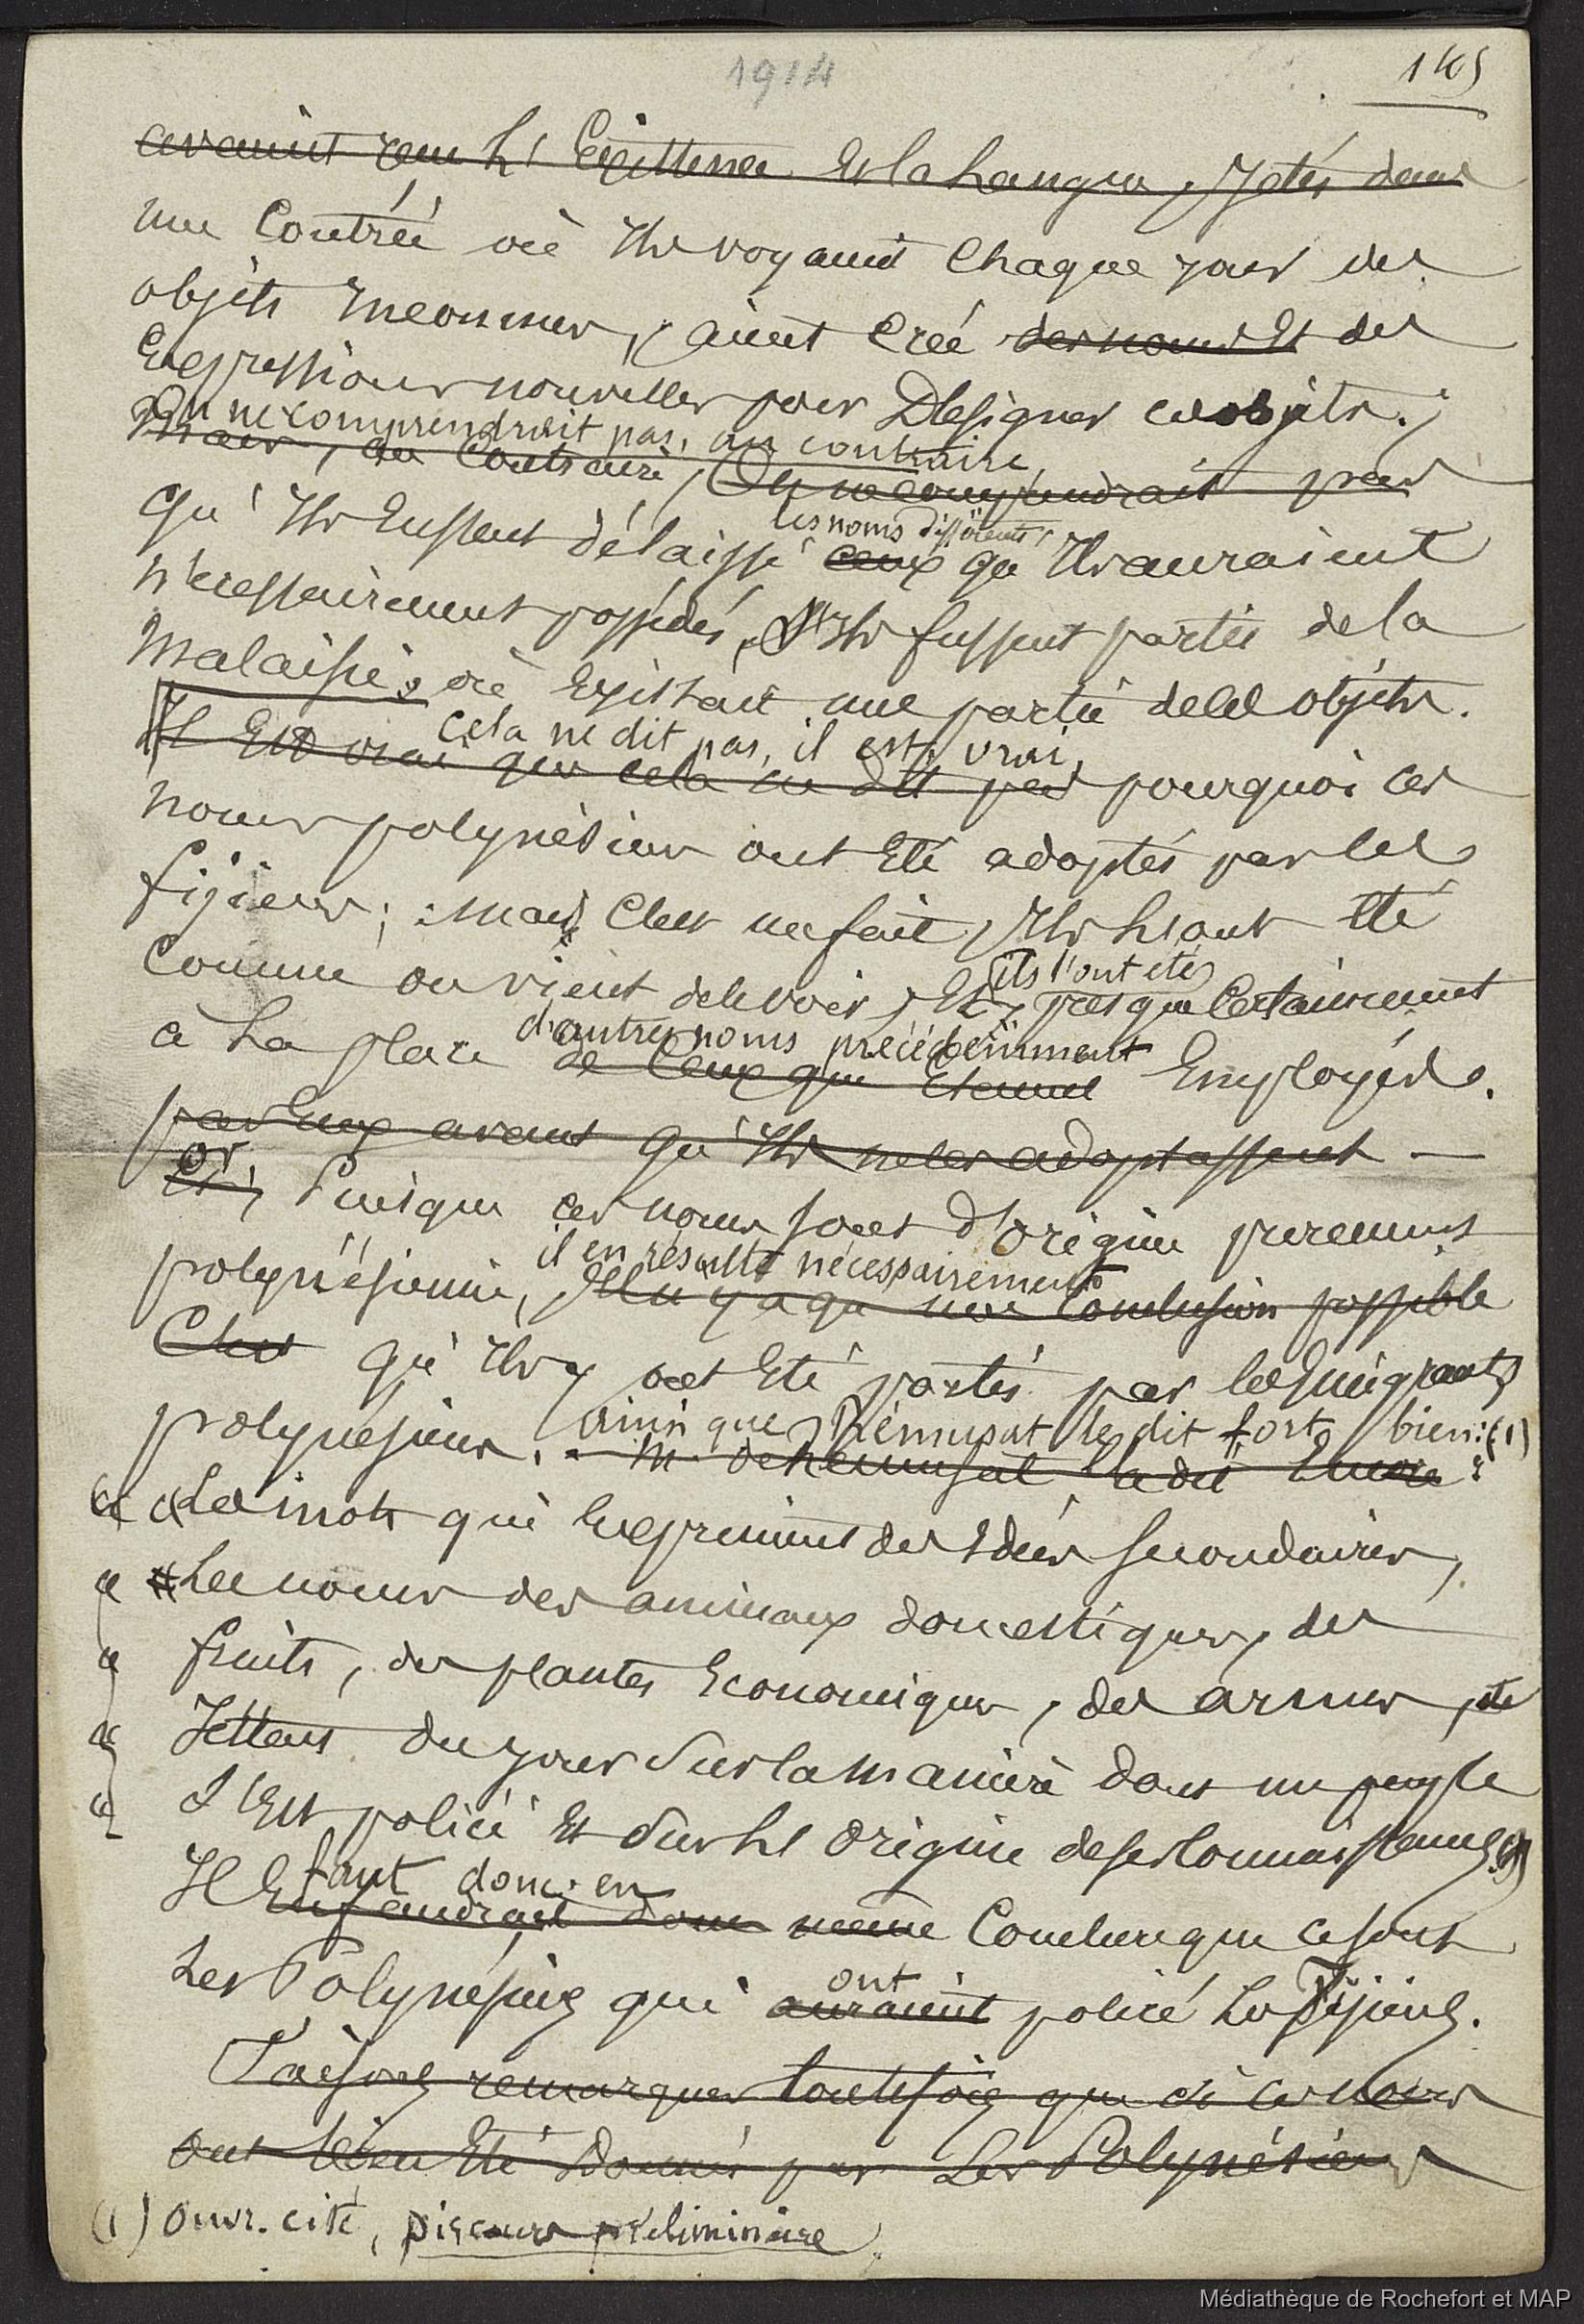 1914
145
avaient reçu l'Existence et la Langue, jetés dans
une Contrée où ils voyaient Chaque jour des
objets inconnus, aient Créé des noms et des
Expressions nouvelles pour Désigner ces objets ;
on ne comprendrait pas, au contraire,
mais, au Contraire, On ne comprendrait pas
les noms différents
qu'ils Eussent délaissé ceux qu'ils auraient
nécessairement possédés, s'ils fussent partis de la
Malaisie, où Existait une partie de ces objets.
Cela ne dit pas, il est vrai,
Il Est vrai que cela ne dit pas pourquoi ces
noms polynésiens ont Eté adoptés par les
fijiens ; mais C'est un fait, ils l'ont Eté
ils l'ont été
Comme on vient de le voir, Et, presque Certainement
d'autres noms précédemment
à La place de Ceux qui Etaient Employés.
par Eux avant qu'ils ne les adoptassent —
or
Et, Puisque ces noms sont d'origine purement
il en résulte nécessairement
polynésienne, il n'y a qu'une Conclusion possible
C'est qu'ils y ont Eté portés par les Emigrants
ainsi que Rémusat le dit fort bien : (1)
polynésiens. M. de Rémusat l'a dit Encore :
« « Les mots qui Expriment des Idées secondaires,
« « Les noms des animaux domestiques, des
« fruits, des plantes Economiques, des armes, etc
« Jettent du jour sur la manière dont un peuple
« s'Est policé Et sur l'origine de ses Connaissances. »
faut donc en
Il En faudrait donc même Conclure que ce sont
ont
Les Polynésiens qui auraient policé Les Fijiens.
Faisons remarquer toutefois que si ces noms
ont bien Eté Donnés par Les Polynésiens
(1) ouvr. cité, Discours préliminaire.
Médiathèque de Rochefort et MAP